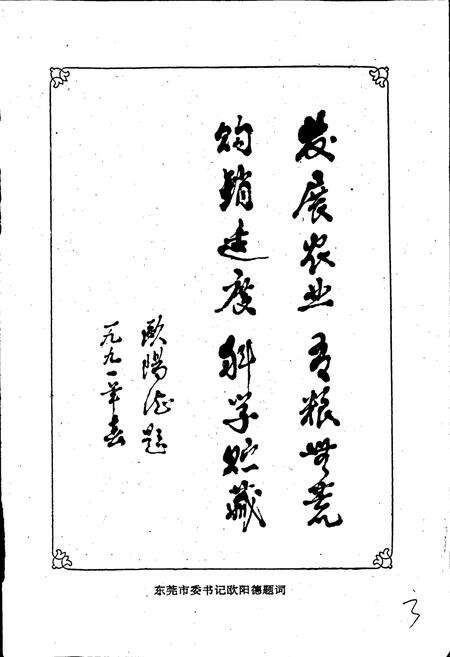 发展农业 有粮無荒
购销适度 科学贮藏
歐陽德题
一九九一年春
东莞市委书记欧阳德题词